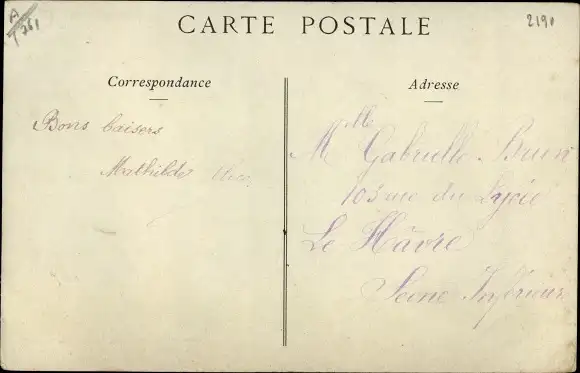 A
T 261
2190
CARTE POSTALE
Correspondance
Adresse
Bons baisers
Mathilde
Mlle Gabrielle Brun
103 rue du Lycée
Le Hâvre
Seine Inférieure